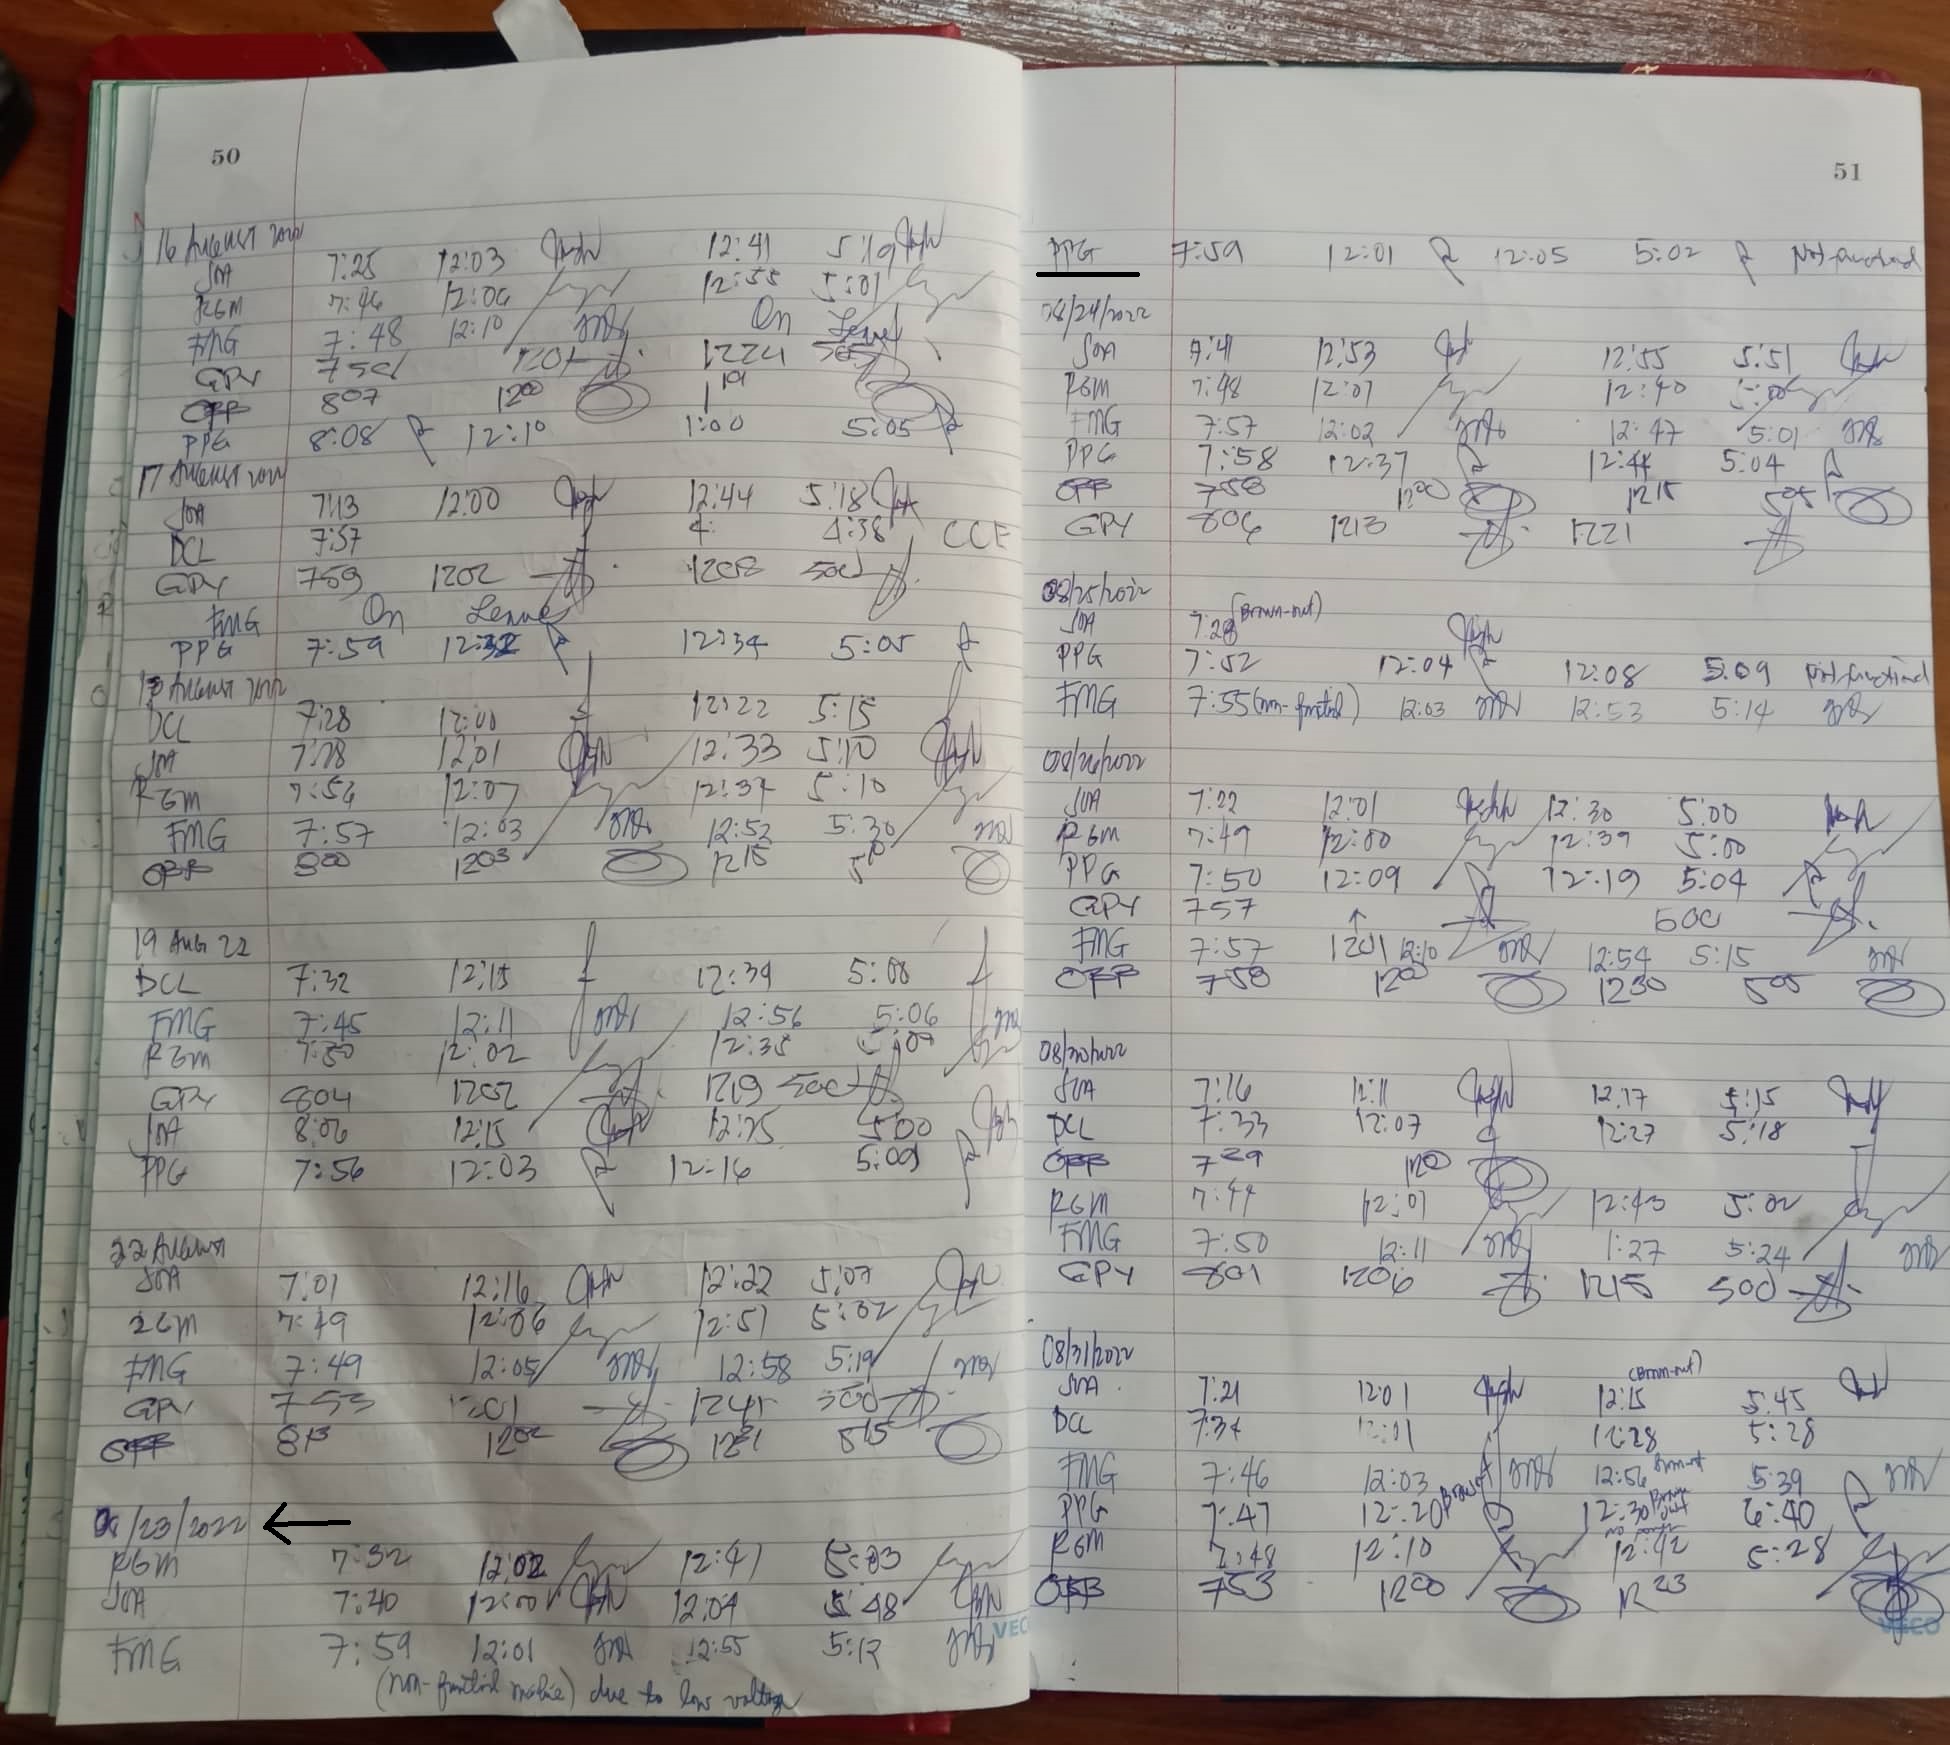 50
16 August 2022
JOA 7:25 12:03 12:41 5:19
RGM 7:46 12:06 12:55 5:01
FMG 7:48 12:10 On Leave
GPY 1201 1224
OFP 807 1200 1
PPG 8:08 12:10 1:00 5:05
17 August 2022
JOA 7:13 12:00 12:44 5:18
DCL 7:57 4: 4:38 CCE
GPY 759 1202 1208 500
FMG On Leave
PPG 7:59 12:32 12:34 5:05
August 2022
DCL 7:28 12:00 12:22 5:15
JOA 7:28 12:01 12:33 5:10
RGM 7:56 12:07 12:37 5:10
FMG 7:57 12:03 12:52 5:30
OFP 800 1203 1215 510
19 Aug 22
DCL 7:32 12:15 12:39 5:00
FMG 7:45 12:11 12:56 5:06
RGM 7:50 12:02 12:35
GPY 804 1202 1219 500
JOA 8:06 12:15 5:00
PPG 7:56 12:03 12:16 5:09
22 August
JOA 7:01 12:16 12:22 5:07
RGM 7:49 12:06 12:51 5:02
FMG 7:49 12:05 12:58 5:19
GPY 753 1201 500
OFP 813 1202 515
/23/2022
RGM 7:32 12:02 12:41 5:03
JOA 7:40 12:00 12:04 5:48
FMG 7:59 12:01 12:55 5:12
(non-functional machine) due to low voltage
51
PPG 7:59 12:01 12:05 5:02 Not functional
08/24/2022
JOA 7:41 12:53 12:55 5:51
RGM 7:48 12:01 12:40 5:00
FMG 7:57 12:02 12:47 5:01
PPG 7:58 12:37 12:44 5:04
OFP 758 1200 1215 505
GPY 806 1213 1221
08/25/2022
JOA 7:28 (Brown-out)
PPG 7:52 12:04 12:08 5:09 Not functional
FMG 7:55 (non-functional) 12:03 12:53 5:14
08/26/2022
JOA 7:22 12:01 12:30 5:00
RGM 7:49 12:00 12:39 5:00
PPG 7:50 12:09 12:19 5:04
GPY 757 500
FMG 7:57 1201 12:10 12:54 5:15
OFP 758 1200 1230 505
08/30/2022
JOA 7:16 12:11 12:17 5:15
DCL 7:33 12:07 12:27 5:18
OFP 739 1200
RGM 7:44 12:01 12:43 5:02
FMG 7:50 12:11 1:27 5:24
GPY 801 1206 1215 500
08/31/2022
JOA 7:21 12:01 12:15 (Brown-out) 5:45
DCL 7:34 12:01 12:28 5:28
FMG 7:46 12:03 12:56 Brown-out 5:39
PPG 7:47 12:20 Brown out 12:30 Brown out 6:40
RGM 7:48 12:10 12:42 5:28
OFP 753 1200 1223
VECO
VECO